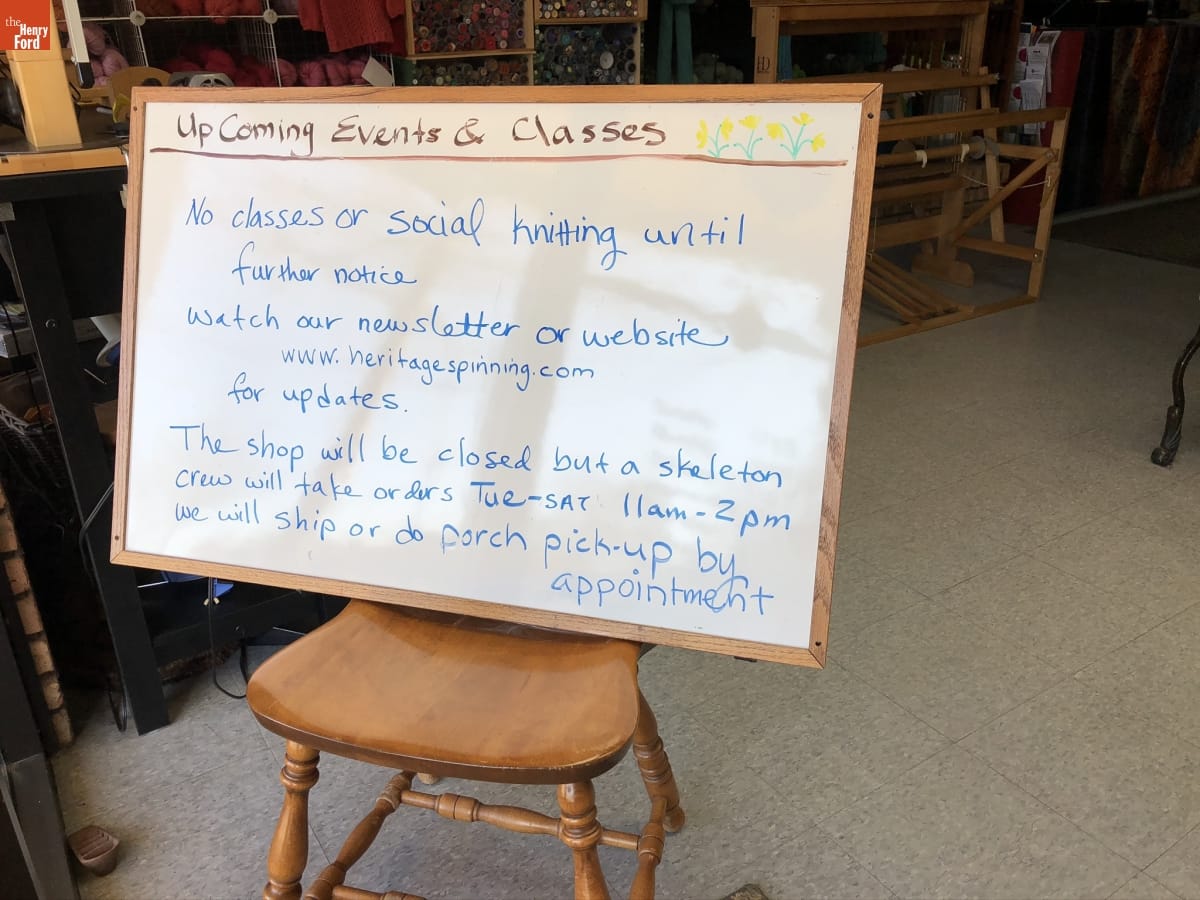 the
Henry
Ford
Up Coming Events & Classes
No classes or social knitting until
further notice
watch our newsletter or website
www.heritagespinning.com
for updates.
The shop will be closed but a skeleton
crew will take orders Tue-SAT 11am-2pm
we will ship or do porch pick-up by
appointment